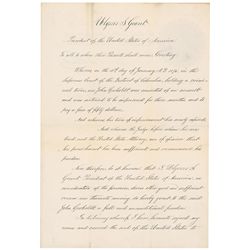 Ulysses S. Grant
President of the United States of America
To all to whom these Presents shall come Greeting
Whereas on the day of January A.D. 187 in the
Supreme Court of the District of Columbia, holding a
term, one John was convicted of an assault
and was sentenced to be imprisoned for three months and to
pay a fine of fifty dollars.
And whereas, his term of imprisonment has nearly expired.
And whereas the Judge before whom he was
tried and the District Attorney, are of opinion that
his punishment has been sufficient and recommend his
pardon.
Now therefore be it known that I, Ulysses S.
Grant President of the United States of America, in
consideration of the premises, divers other good and sufficient
reasons me thereunto moving, do hereby grant to the said
John a full and unconditional pardon.
In testimony whereof, I have hereunto signed my
name and caused the seal of the United States to